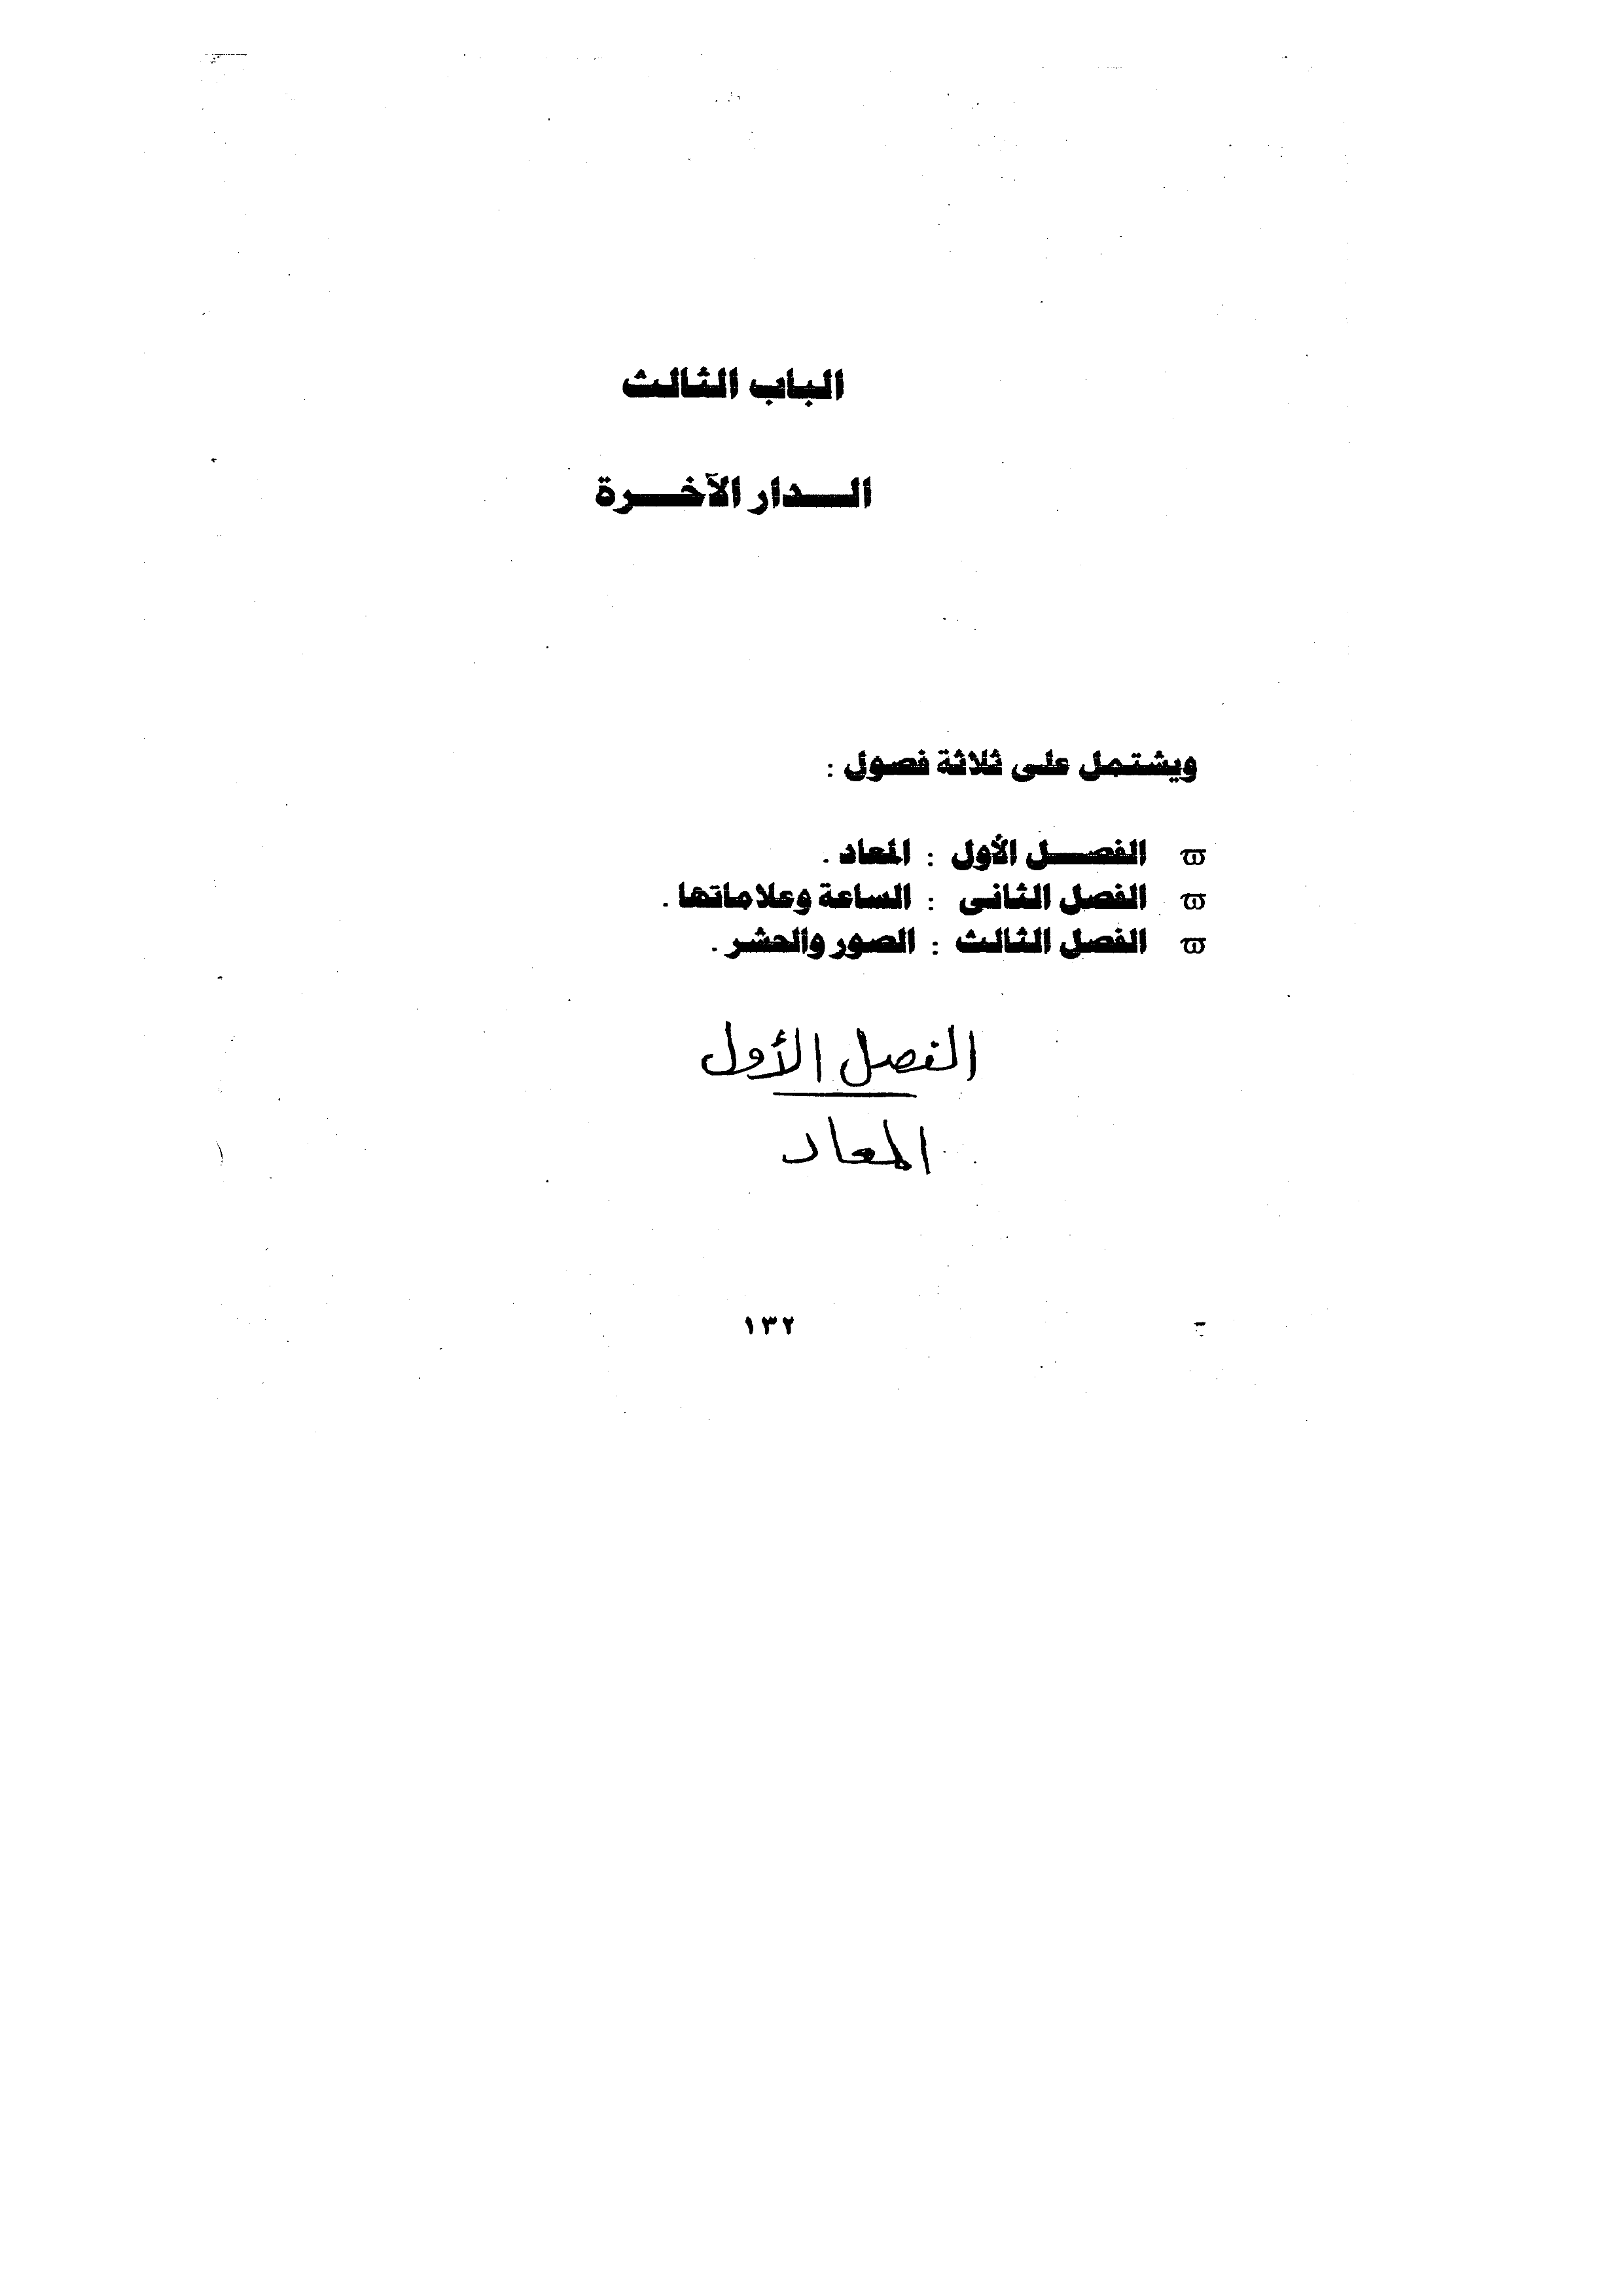 الباب الثالث
الـــدار الآخـــرة
ويشتمل على ثلاثة فصول :
ϖ الفصـــل الأول : المعاد .
ϖ الفصل الثانى : الساعة وعلاماتها .
ϖ الفصل الثالث : الصور والحشر .
الفصل الأول
المعاد
١٣٢